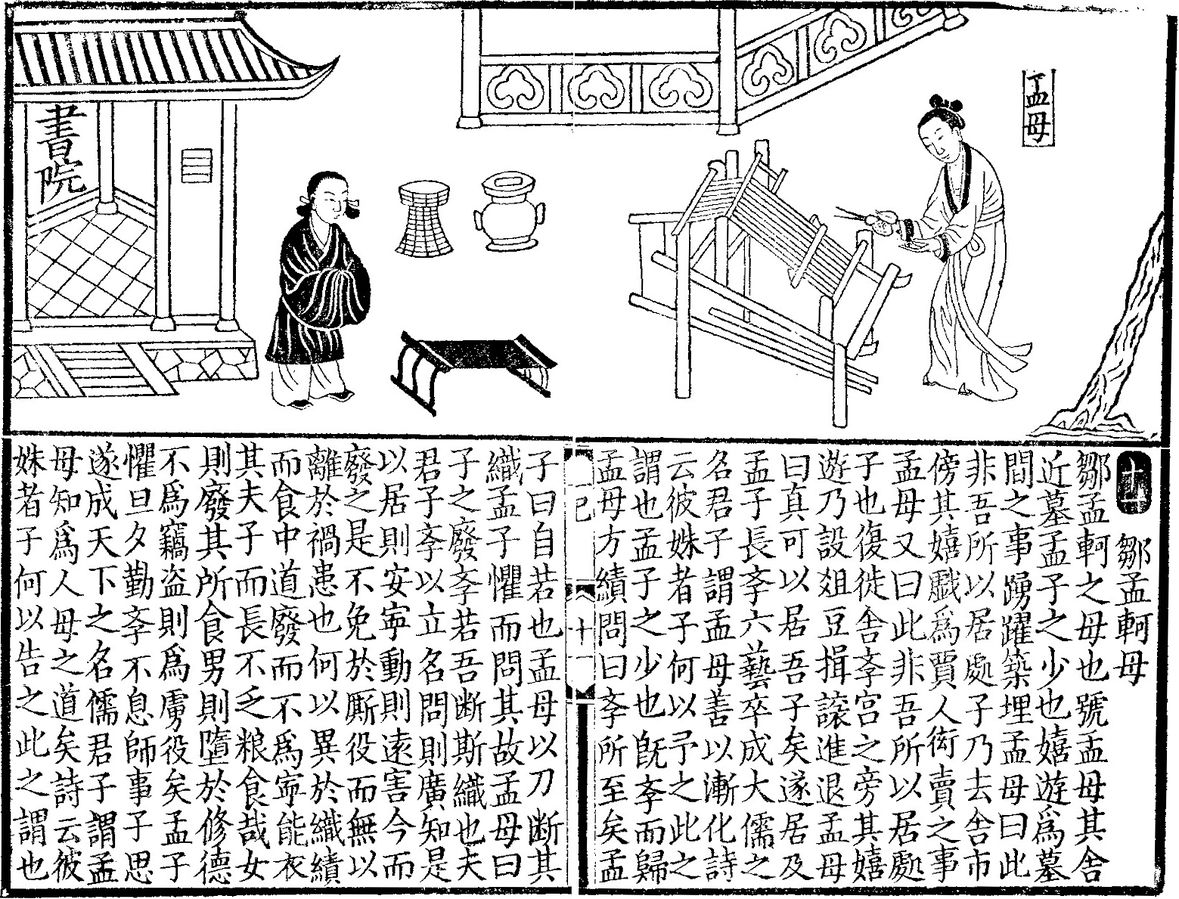 孟母
書院
十一 鄒孟軻母
鄒孟軻之母也號孟母其舍
近墓孟子之少也嬉遊爲墓
間之事踴躍築埋孟母曰此
非吾所以居處子乃去舍市
傍其嬉戲爲賈人衒賣之事
孟母又曰此非吾所以居處
子也復徙舍斈宮之旁其嬉
遊乃設爼豆揖讓進退孟母
曰真可以居吾子矣遂居及
孟子長斈六藝卒成大儒之
名君子謂孟母善以漸化詩
云彼姝者子何以予之此之
謂也孟子之少也旣斈而歸
孟母方績問曰斈所至矣孟
十一
子曰自若也孟母以刀断其
織孟子懼而問其故孟母曰
子之廢斈若吾断斯織也夫
君子斈以立名問則廣知是
以居則安寧動則遠害今而
廢之是不免於厮役而無以
離於禍患也何以異於織績
而食中道廢而不爲寧能衣
其夫子而長不乏粮食哉女
則廢其所食男則墮於修德
不爲竊盗則爲虜役矣孟子
懼旦夕勤斈不息師事子思
遂成天下之名儒君子謂孟
母知爲人母之道矣詩云彼
姝者子何以告之此之謂也